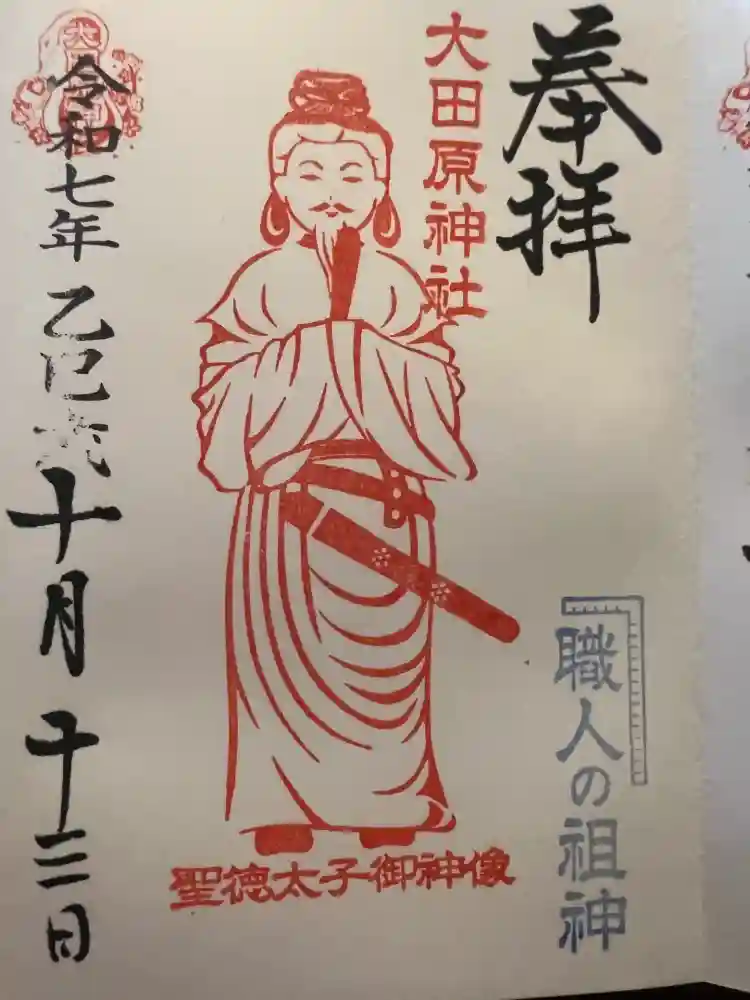 奉拝
大田原神社
職人の祖神
聖徳太子御神像
令和七年 乙巳歳 十月 十三日